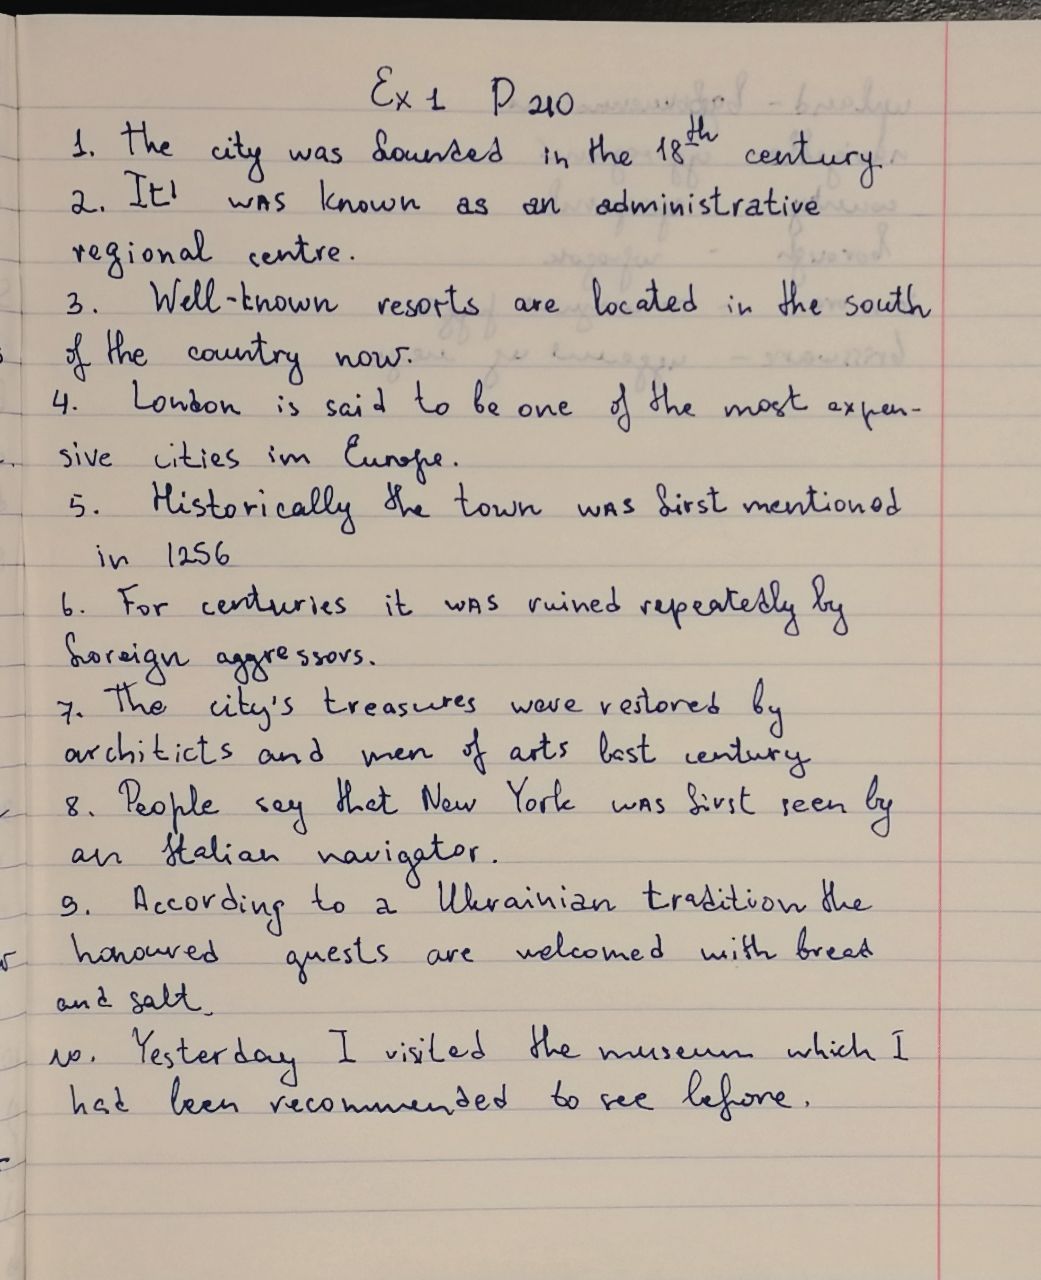 Ex 1 P 210
1. The city was founded in the 18th century.
2. It was known as an administrative
regional centre.
3. Well-known resorts are located in the south
of the country now.
4. London is said to be one of the most expen-
sive cities in Europe.
5. Historically the town was first mentioned
in 1256
6. For centuries it was ruined repeatedly by
foreign aggressors.
7. The city's treasures were restored by
architicts and men of arts last century
8. People say that New York was first seen by
an Italian navigator.
9. According to a Ukrainian tradition the
honoured guests are welcomed with bread
and salt.
10. Yesterday I visited the museum which I
had been recommended to see before.